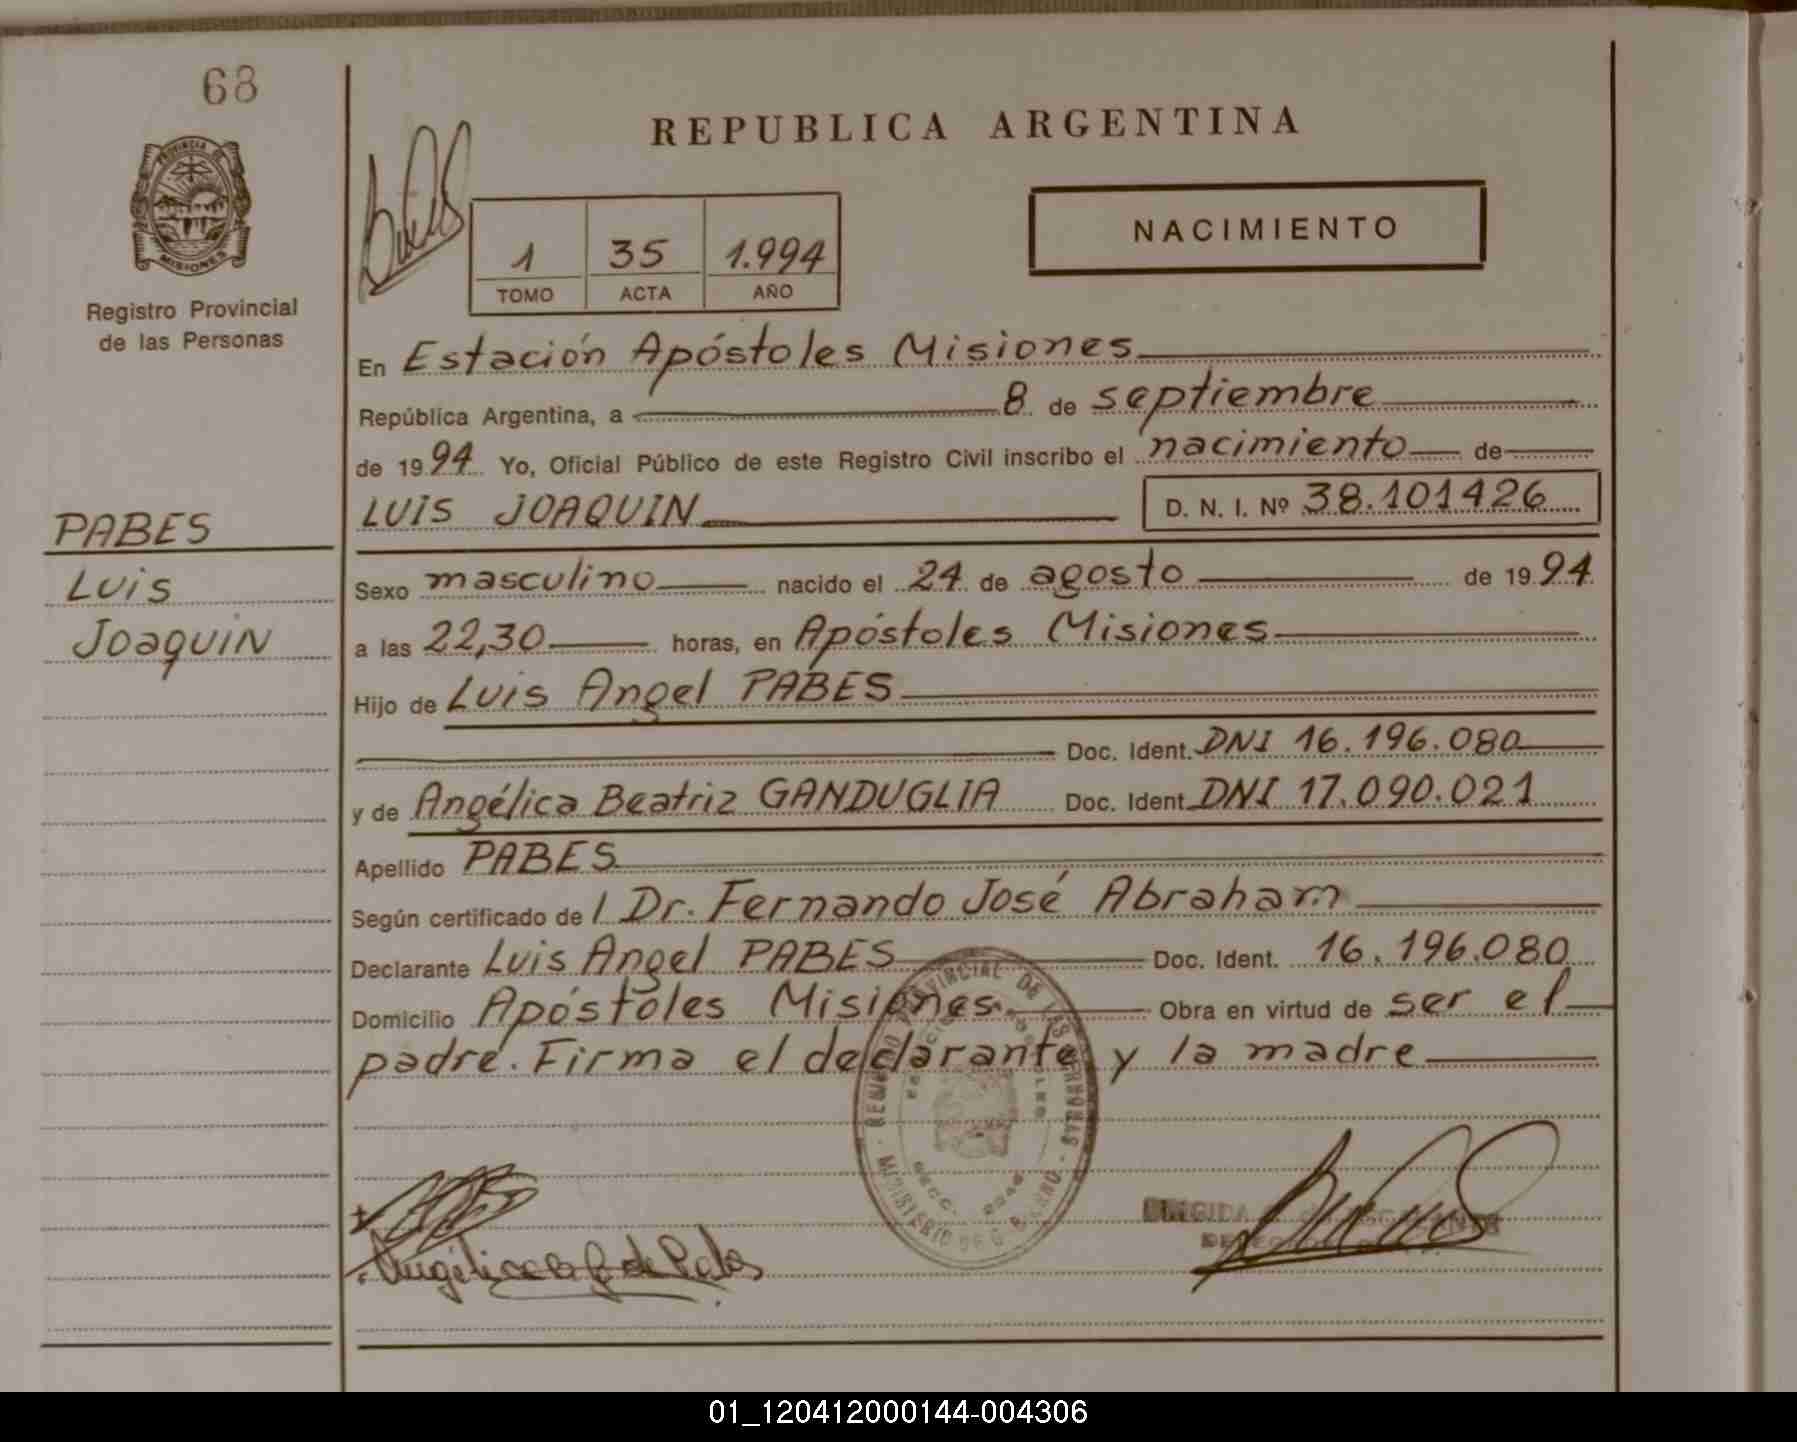 68
REPUBLICA ARGENTINA
PROVINCIA DE
MISIONES
Registro Provincial
de las Personas
NACIMIENTO
1 35 1.994
TOMO ACTA AÑO
En Estación Apóstoles Misiones
República Argentina, a 8 de septiembre
de 1994 Yo, Oficial Público de este Registro Civil inscribo el nacimiento de
LUIS JOAQUIN D. N. I. Nº 38.101426
PABES
Luis
Joaquin
Sexo masculino nacido el 24 de agosto de 1994
a las 22,30 horas, en Apóstoles Misiones
Hijo de Luis Angel PABES
Doc. Ident. DNI 16.196.080
y de Angélica Beatriz GANDUGLIA Doc. Ident. DNI 17.090.021
Apellido PABES
Según certificado de l Dr. Fernando José Abraham
Declarante Luis Angel PABES Doc. Ident. 16.196.080
Domicilio Apóstoles Misiones Obra en virtud de ser el
padre. Firma el declarante y la madre
REGISTRO PROVINCIAL DE LAS PERSONAS
MINISTERIO DE GOBIERNO
Angélica G de Pabes
01_120412000144-004306